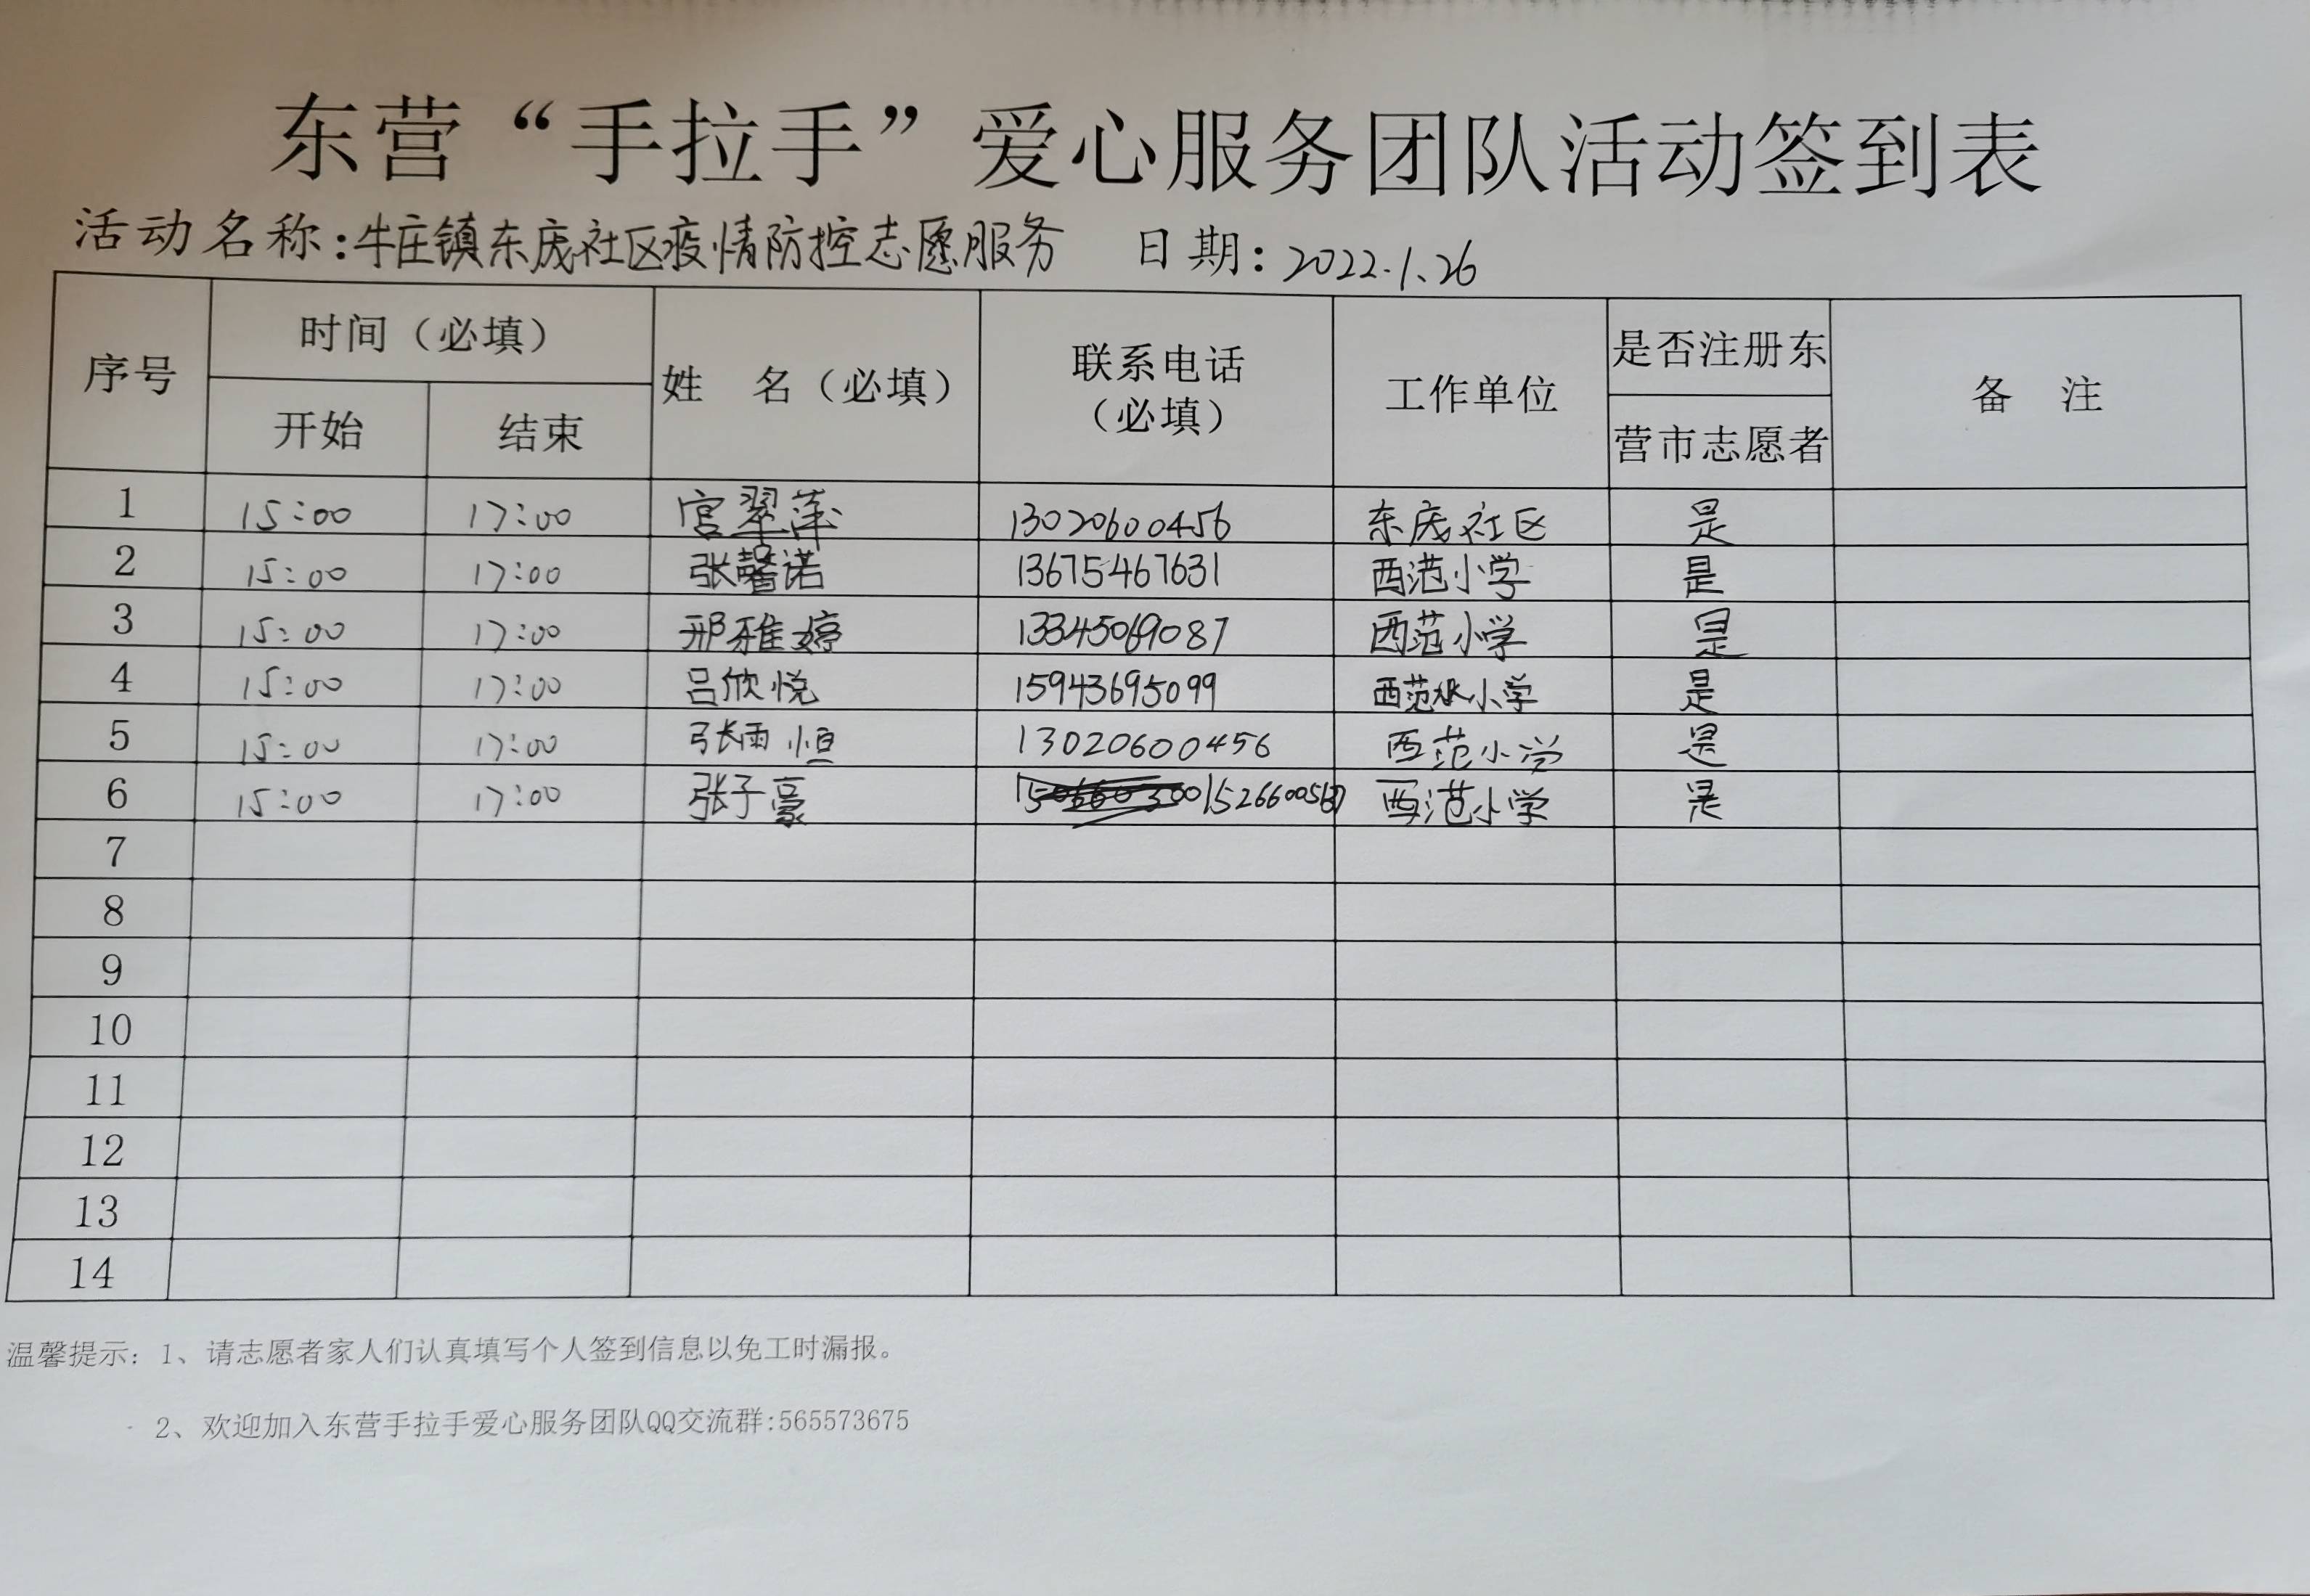 东营“手拉手”爱心服务团队活动签到表
活动名称:牛庄镇东庞社区疫情防控志愿服务 日期:2022.1.26
序号 时间（必填） 姓 名（必填） 联系电话（必填） 工作单位 是否注册东营市志愿者 备 注
开始 结束
1 15:00 17:00 宫翠萍 13020600456 东庞社区 是
2 15:00 17:00 张馨诺 13675467631 西范小学 是
3 15:00 17:00 邢雅婷 13345069087 西范小学 是
4 15:00 17:00 吕欣悦 15943695099 西范小学 是
5 15:00 17:00 张雨恒 13020600456 西范小学 是
6 15:00 17:00 张子豪 西范小学 是
7
8
9
10
11
12
13
14
温馨提示：1、请志愿者家人们认真填写个人签到信息以免工时漏报。
2、欢迎加入东营手拉手爱心服务团队QQ交流群:565573675